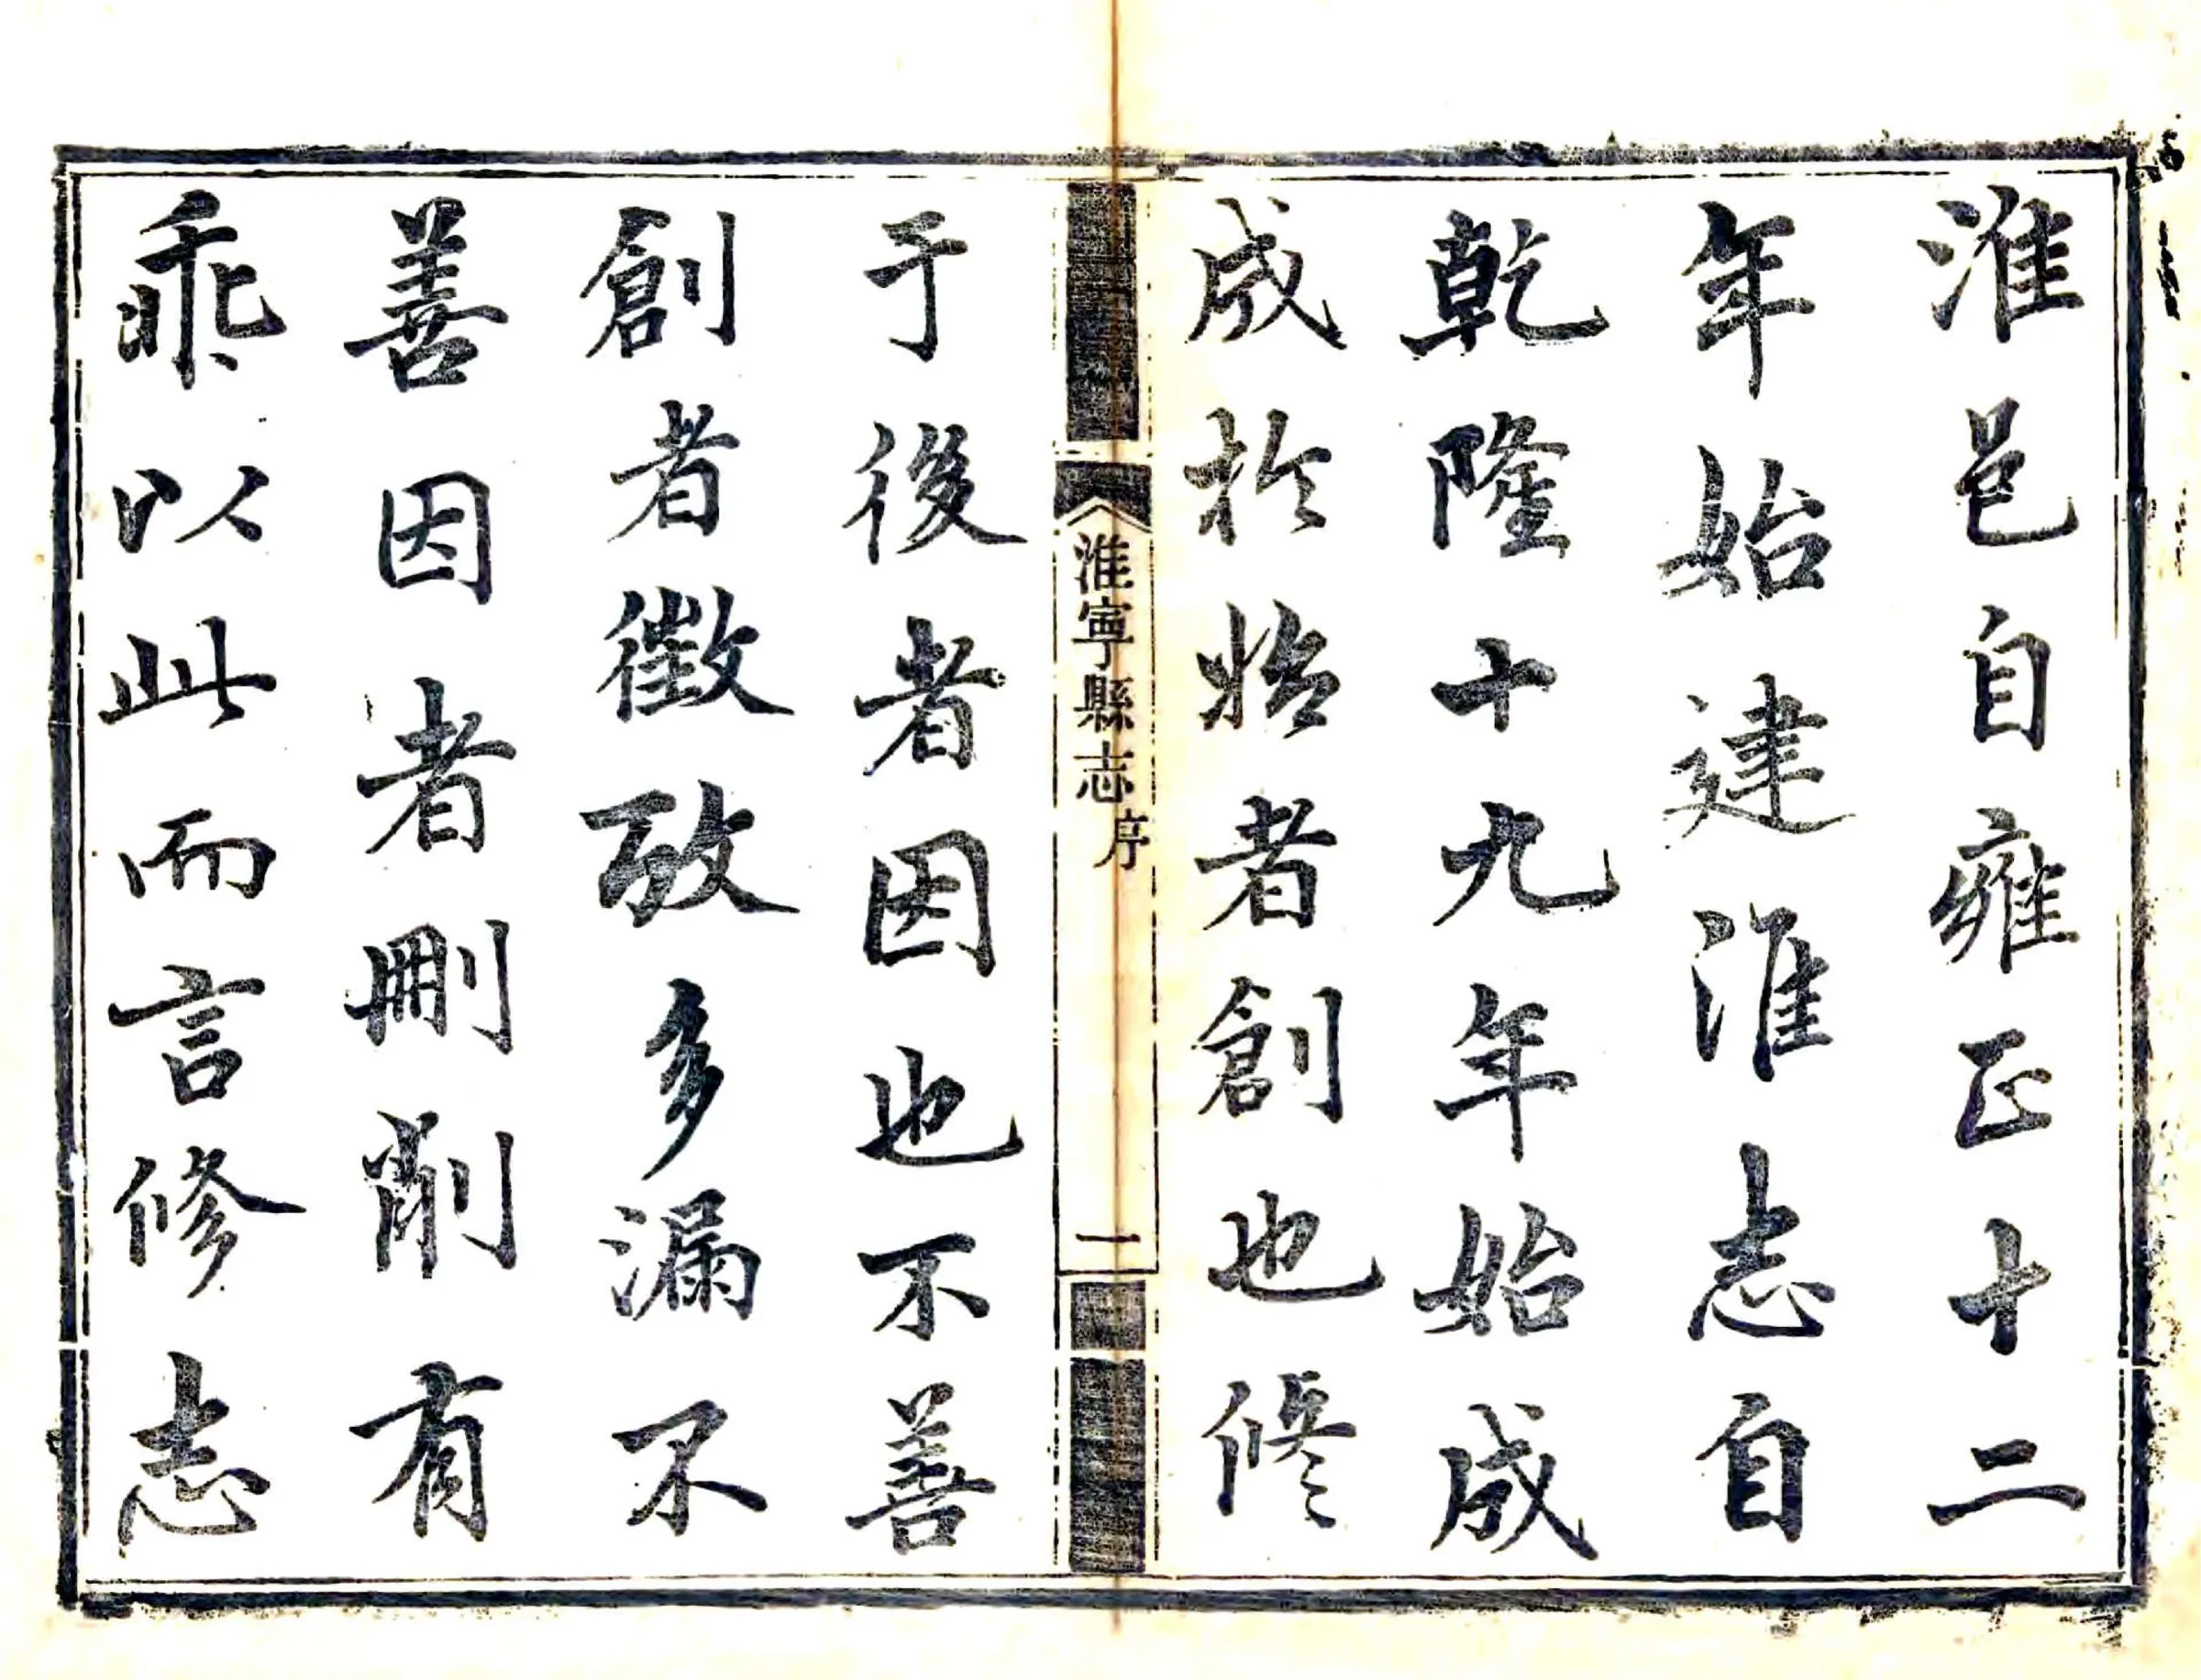 淮邑自雍正十二
年始建淮志自
乾隆十九年始成
成於始者創也修
淮寧縣志 序 一
于後者因也不善
創者徵攷多漏不
善因者刪削有
乖以此而言修志